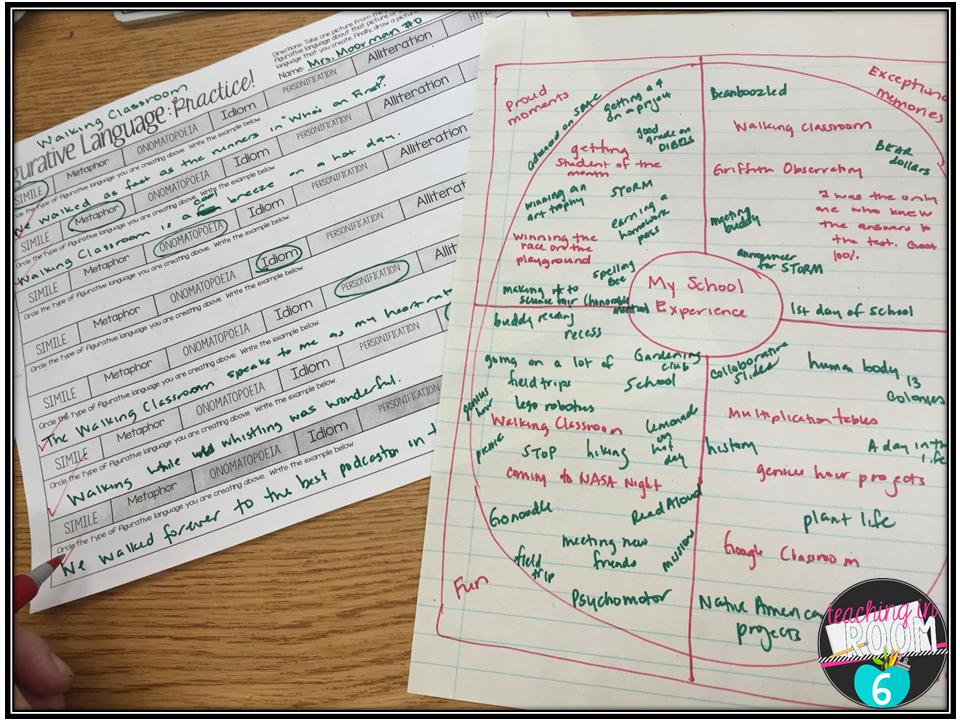 Walking Classroom
Figurative Language: Practice!
Name: Mrs. Moorman #0
SIMILE Metaphor ONOMATOPOEIA Idiom PERSONIFICATION Alliteration
Circle the type of figurative language you are creating above. Write the example below.
We walked as fast as the runners in "Who's on First?"
SIMILE Metaphor ONOMATOPOEIA Idiom PERSONIFICATION Alliteration
Circle the type of figurative language you are creating above. Write the example below.
Walking Classroom is a cool breeze on a hot day.
SIMILE Metaphor ONOMATOPOEIA Idiom PERSONIFICATION Alliteration
Circle the type of figurative language you are creating above. Write the example below.
SIMILE Metaphor ONOMATOPOEIA Idiom PERSONIFICATION
Circle the type of figurative language you are creating above. Write the example below.
The Walking Classroom speaks to me as my heart
SIMILE Metaphor ONOMATOPOEIA Idiom PERSONIFICATION
Circle the type of figurative language you are creating above. Write the example below.
Walking while whistling was wonderful.
SIMILE Metaphor ONOMATOPOEIA Idiom PERSONIFICATION
Circle the type of figurative language you are creating above. Write the example below.
We walked forever to the best podcast on
My School
Experience
Proud
moments
advanced on SBAC
getting a 4
on a project
good
grade on
DIBELS
getting
student of the
month
winning an
art trophy
STORM
earning a
homework
pass
winning the
race on the
playground
spelling
bee
making it to
science fair (honorable
mention)
Exception
memories
Beanboozled
Walking Classroom
BEAR
dollars
Griffith Observatory
I was the only
one who knew
the answers to
the test. Got
100%.
meeting
buddy
announcer
for STORM
1st day of school
buddy reading
recess
going on a lot of
field trips
Gardening
club
School
genius
hour
lego robotics
Walking Classroom
lemonade
on
hot
day
picnic
STOP
hiking
coming to NASA Night
Gonoodle
Read Aloud
meeting new
friends
missions
field
trip
Fun
Psychomotor
collaborative
slides
human body
13
colonies
Multiplication tables
history
A day in the
life
genius hour projects
plant life
Google Classroom
Native American
projects
teaching in
ROOM
6